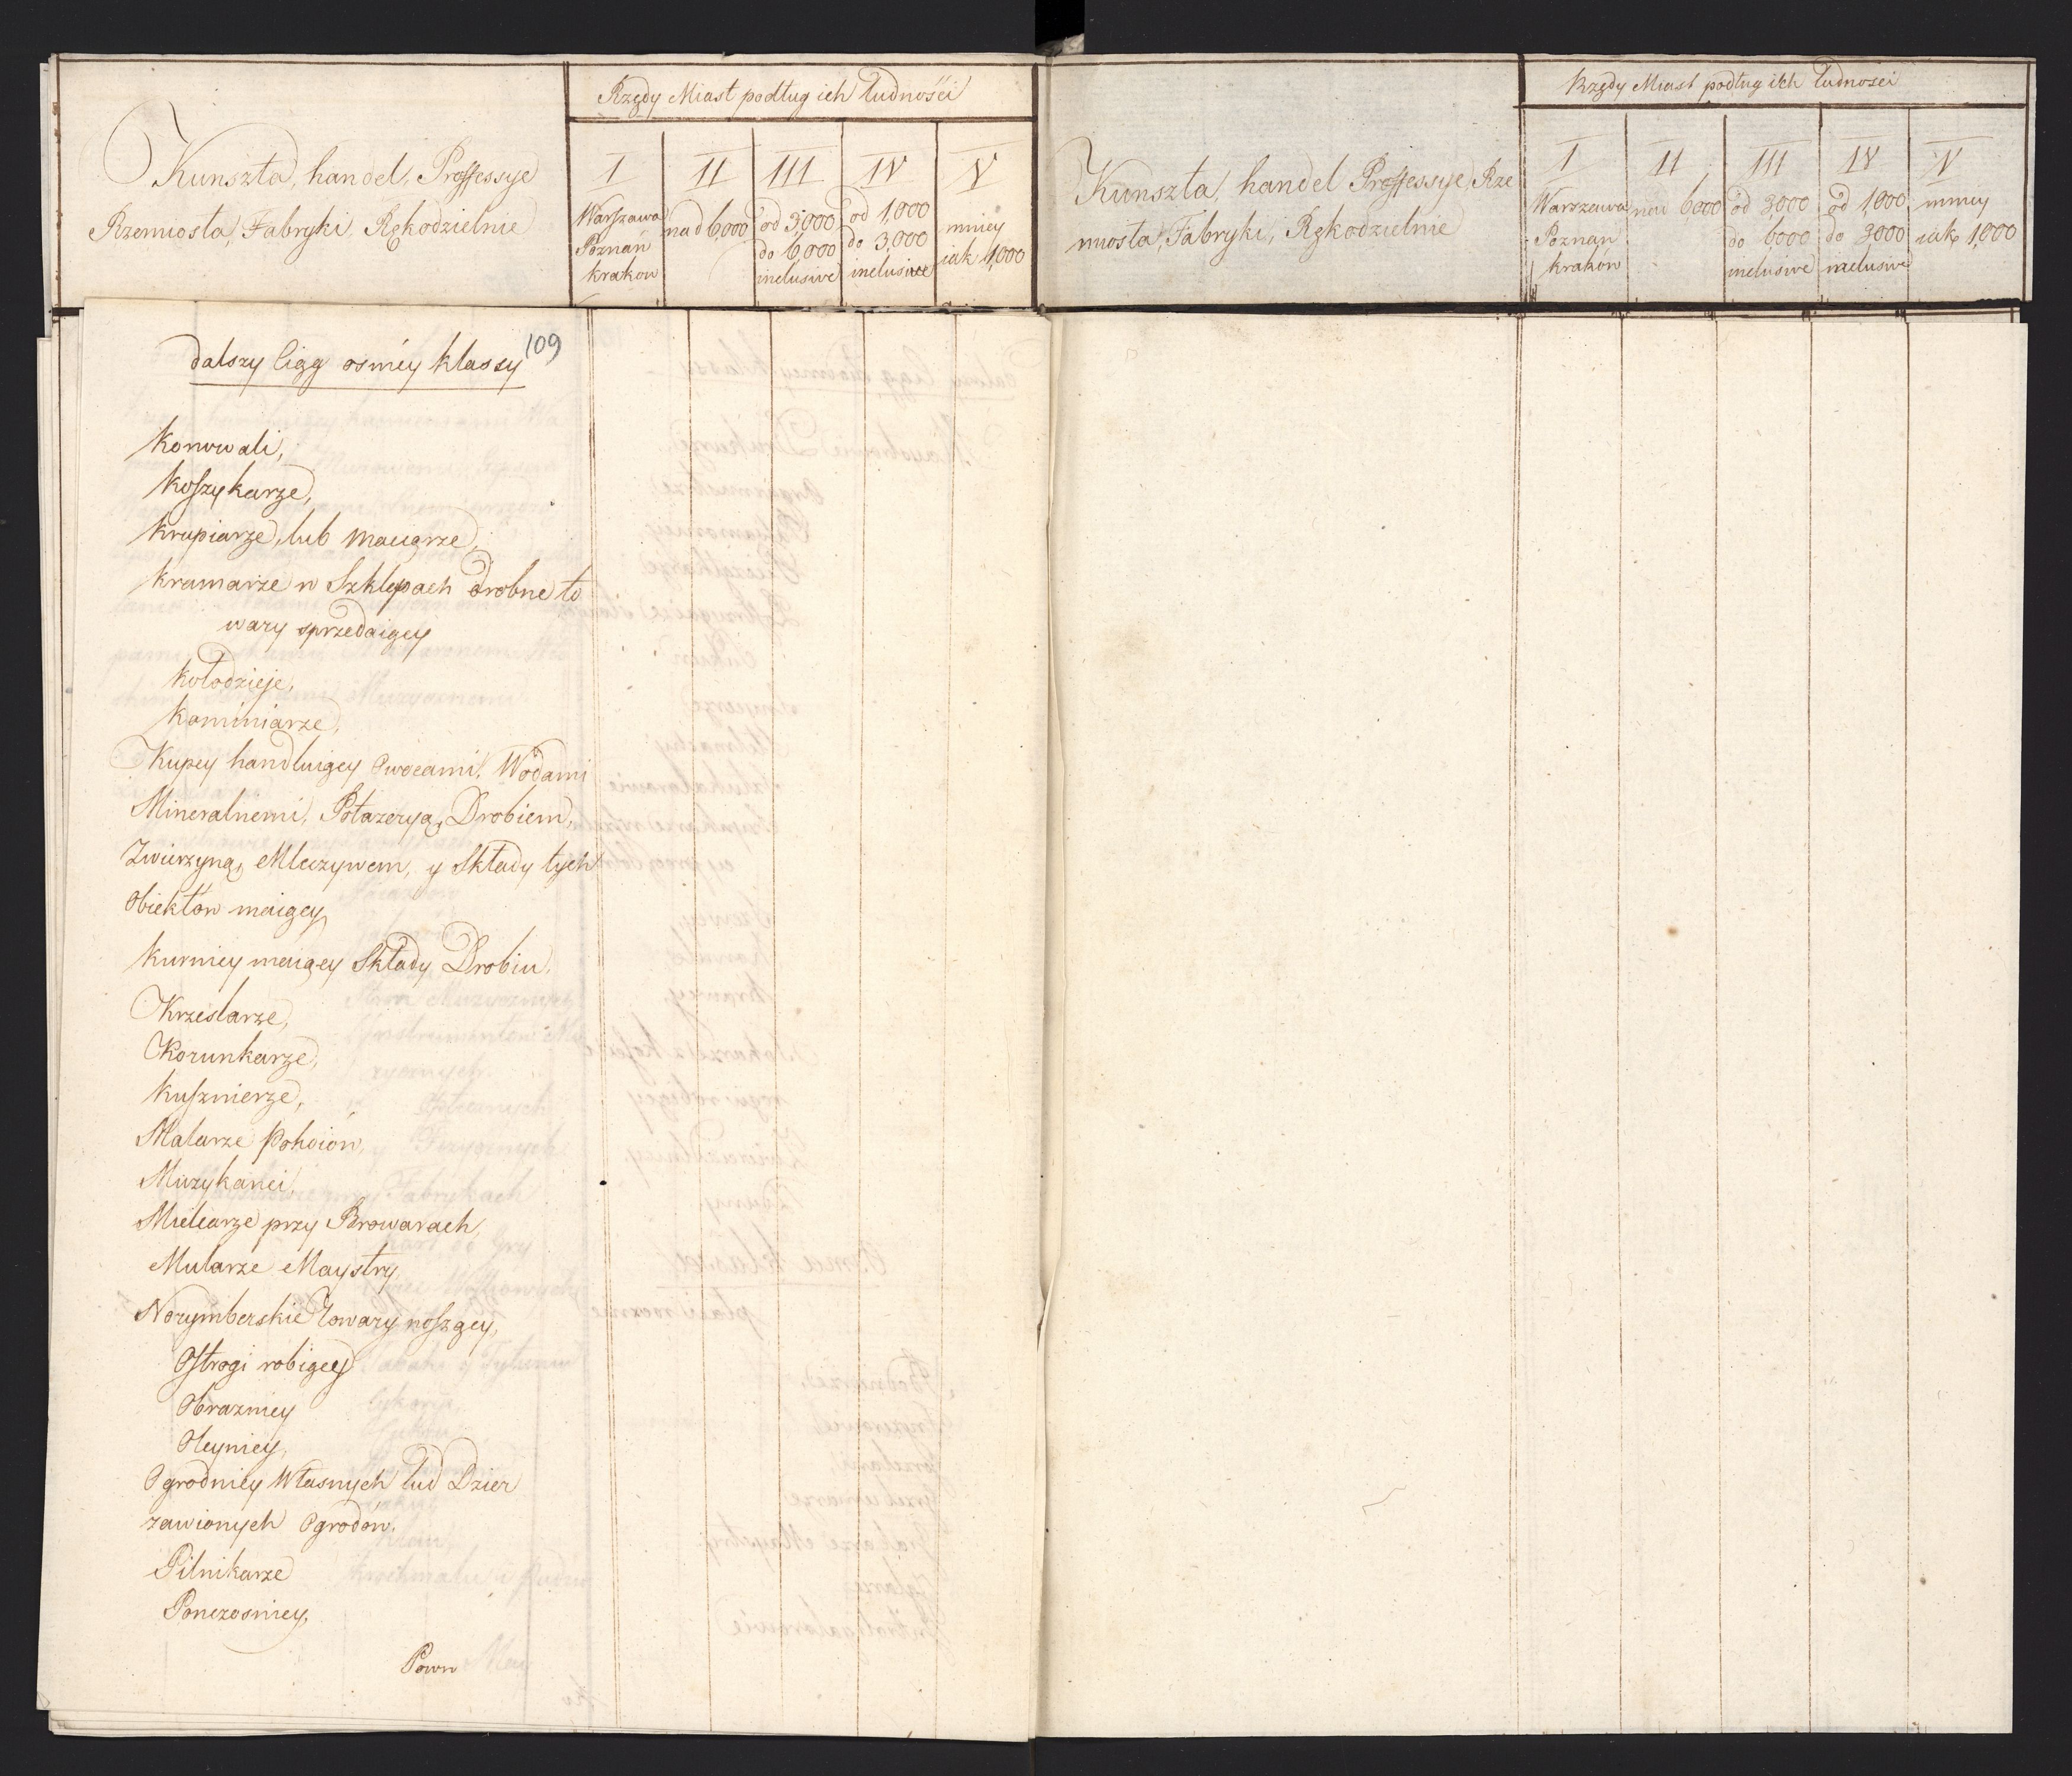 Kunszta, handel, Proffessye
Rzemiosła, Fabryki, Rękodzielnie
Rzędy Miast podług ich Ludności
I
II
III
IV
V
Warszawa
Poznań
Krakow
nad 6,000
od 3,000
do 6,000
inclusive
od 1,000
do 3,000
inclusive
mniey
iak 1,000
Kunszta, handel Proffessye, Rze
miosła, Fabryki, Rękodzielnie
Rzędy Miast podług ich Ludności
I
II
III
IV
V
Warszawa
Poznan
Krakow
nad 6000
od 3,000
do 6000
inclusive
od 1,000
do 3000
inclusive
mniey
iak 1,000
109
dalszy Ciąg osméy klassy
Konowali,
Koszykarze,
Krupiarze, lub Mącarze,
Kramarze w Szklepach drobne to
wary sprzedaiący
Kołodzieje,
Kominiarze,
Kupcy handluiący Owocami, Wodami
Mineralnemi, Potazeryą, Drobiem,
Zwierzyną, Mleczywem, y Składy tych
Obiektów maiący,
Kurnicy maiący Składy Drobiu,
Krzeslarze,
Korunkarze,
Kuszmierze,
Malarze Pokoiow,
Muzykanci,
Mielcarze przy Browarach,
Mularze Maystry,
Norymberskie Towary noszący,
Ostrogi robiący
Obraznicy
Oleynicy,
Ogrodnicy Własnych lud Dzier
zawionych Ogrodow.
Pilnikarze
Ponczosnicy,
Pown